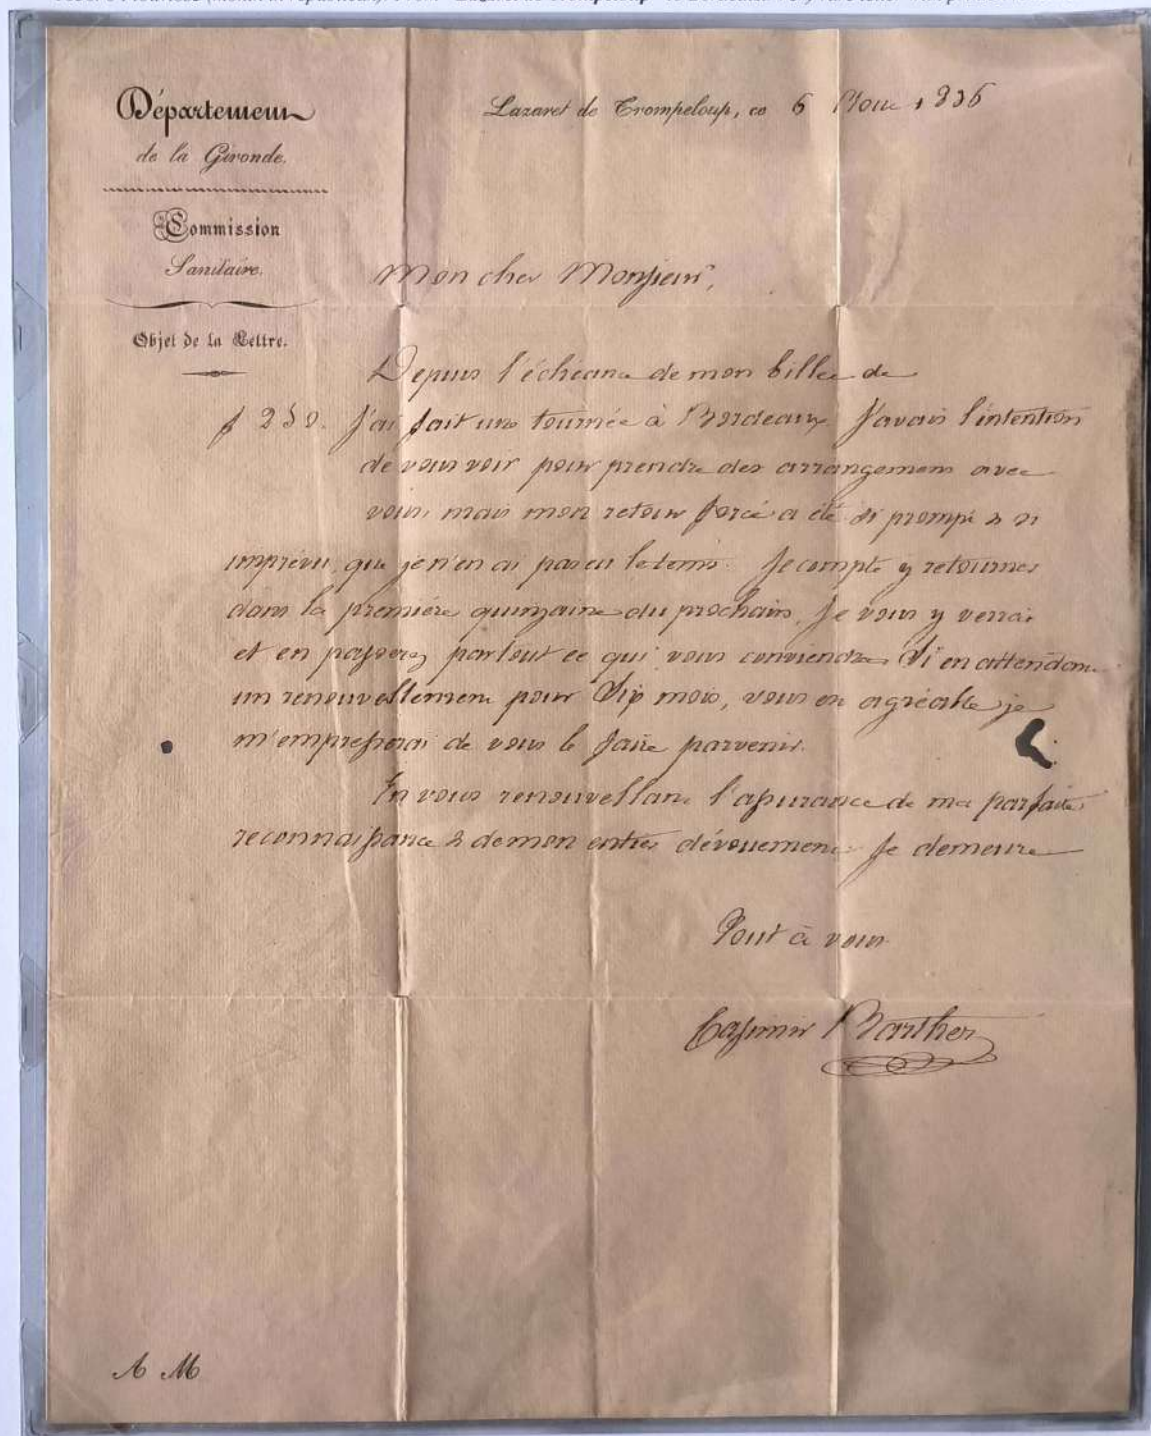 Département
de la Gironde.
Commission
Sanitaire.
Objet de la Lettre.
Lazaret de Trompeloup, ce 6 1836
Mon cher Monsieur,
Depuis l'échéance de mon billet de
f 250. J'ai fait une tournée à Bordeaux. J'avais l'intention
de vous voir pour prendre des arrangemens avec
vous, mais mon retour forcé a été si prompt & si
imprévu, que je n'en ai pas eu le tems. Je compte y retourner
dans la première quinzaine du prochain, Je vous y verrai
et en passerez partout ce qui vous conviendra. Si en attendant
un renouvellement pour Six mois, vous est agréable je
m'empresserai de vous le faire parvenir.
En vous renouvellant l'assurance de ma parfaite
reconnaissance & de mon entier dévouement Je demeure
Tout à vous
Casimir Barthez
A M